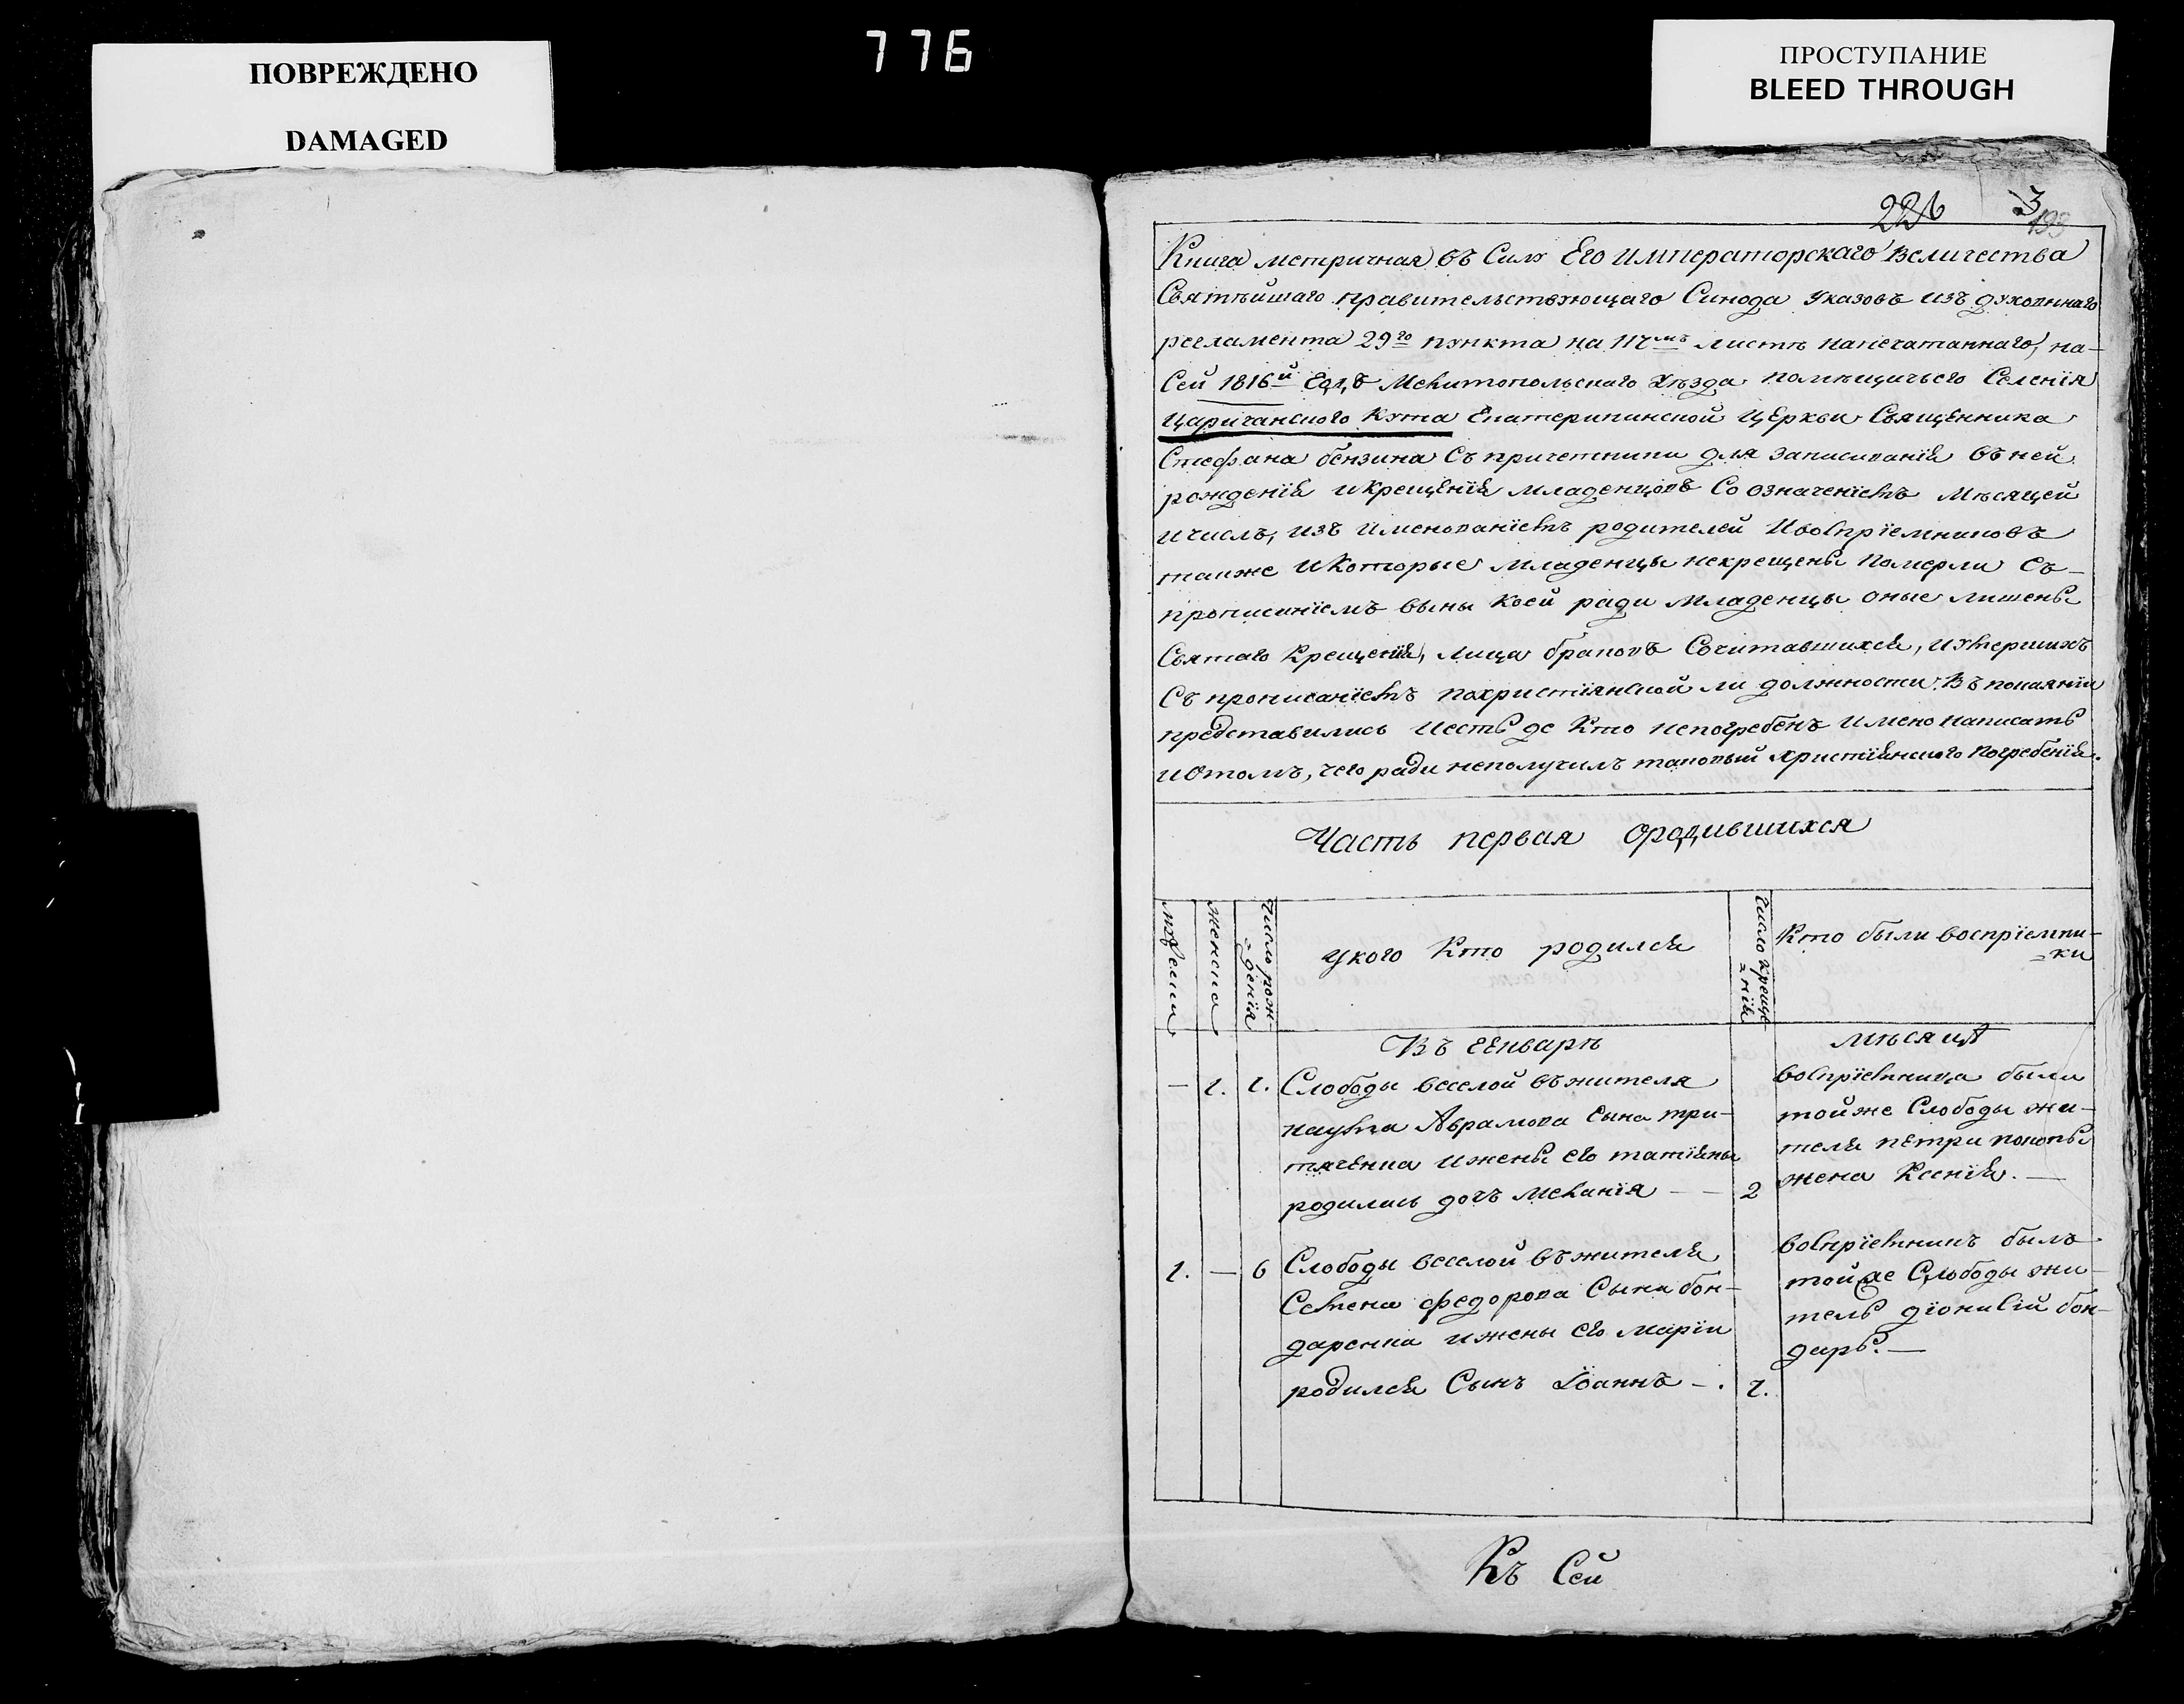 ПОВРЕЖДЕНО
DAMAGED
776
ПРОСТУПАНИЕ
BLEED THROUGH
3
193
Книга метричная въ Силу Его Императорскаго Величества
Святѣйшаго правительствующаго Синода указовъ изъ духовнаго
регламента 29го пункта на листѣ напечатаннаго, на-
Сей 1816й Годъ Мелитопольскаго уѣзда помѣщичьего Селенія
Царичанского Кута Екатерининской Церкви Священника
Стефана бензина Съ причетники для записиванія въ ней
рожденія и крещенія младенцовъ Со означеніемъ мѣсяцей
и числъ, изъ именованіемъ родителей И воспріемниковъ
также и которые младенцы некрещены померли Съ-
прописаніемъ вины коей ради младенцы оные лишены
Святаго Крещенія, лица браковъ Сочитавшихся, и умершихъ
Съ прописаніемъ по христіянской ли должности въ покаянии
представились и есть де Кто непогребенъ имено написать
и Отомъ, чего ради неполучилъ таковый христіянского погребенія.
Часть первая ородившихся
мужески
женска
число рож-
-денія
укого Кто родился
число креще
-нія
Кто были воспріемни-
-ки
Въ Генварѣ
мѣсяцѣ
— 1. 1. Слободы веселой въ жителя
наума Аврамова Сына три-
тяченка и жены его татіяны
родилась дочъ Меланія — — 2
воспріемница были
тойже Слободы жи-
теля петра
жена Ксенія. —
1. — 6 Слободы веселой въ жителя
Семена федорова Сына бон-
даренка и жены его Маріи
родился Сынъ Іоаннъ — . 7.
воспріемникъ былъ
тойже Слободы жи-
тель діонисій бон-
дарь. —
Къ Сей